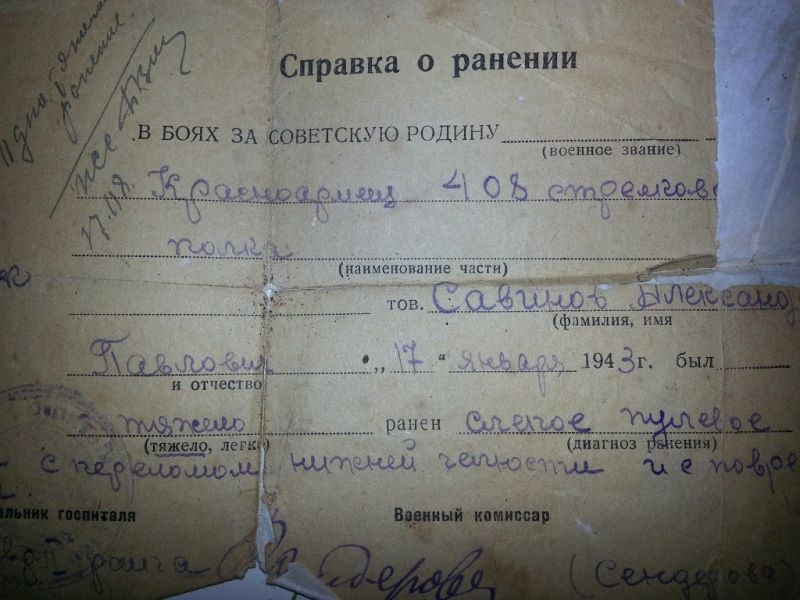 Справка о ранении
В БОЯХ ЗА СОВЕТСКУЮ РОДИНУ
(военное звание)
Красноармеец 408 стрелков
полка
(наименование части)
тов. Савинов Александ
(фамилия, имя
Павлович „17“ января 1943 г. был
и отчество
тяжело ранен слепое пулевое
(тяжело, легко (диагноз ранения)
с переломом нижней челюсти и с повре
альник госпиталя Военный комиссар
ранга (Сендерова)